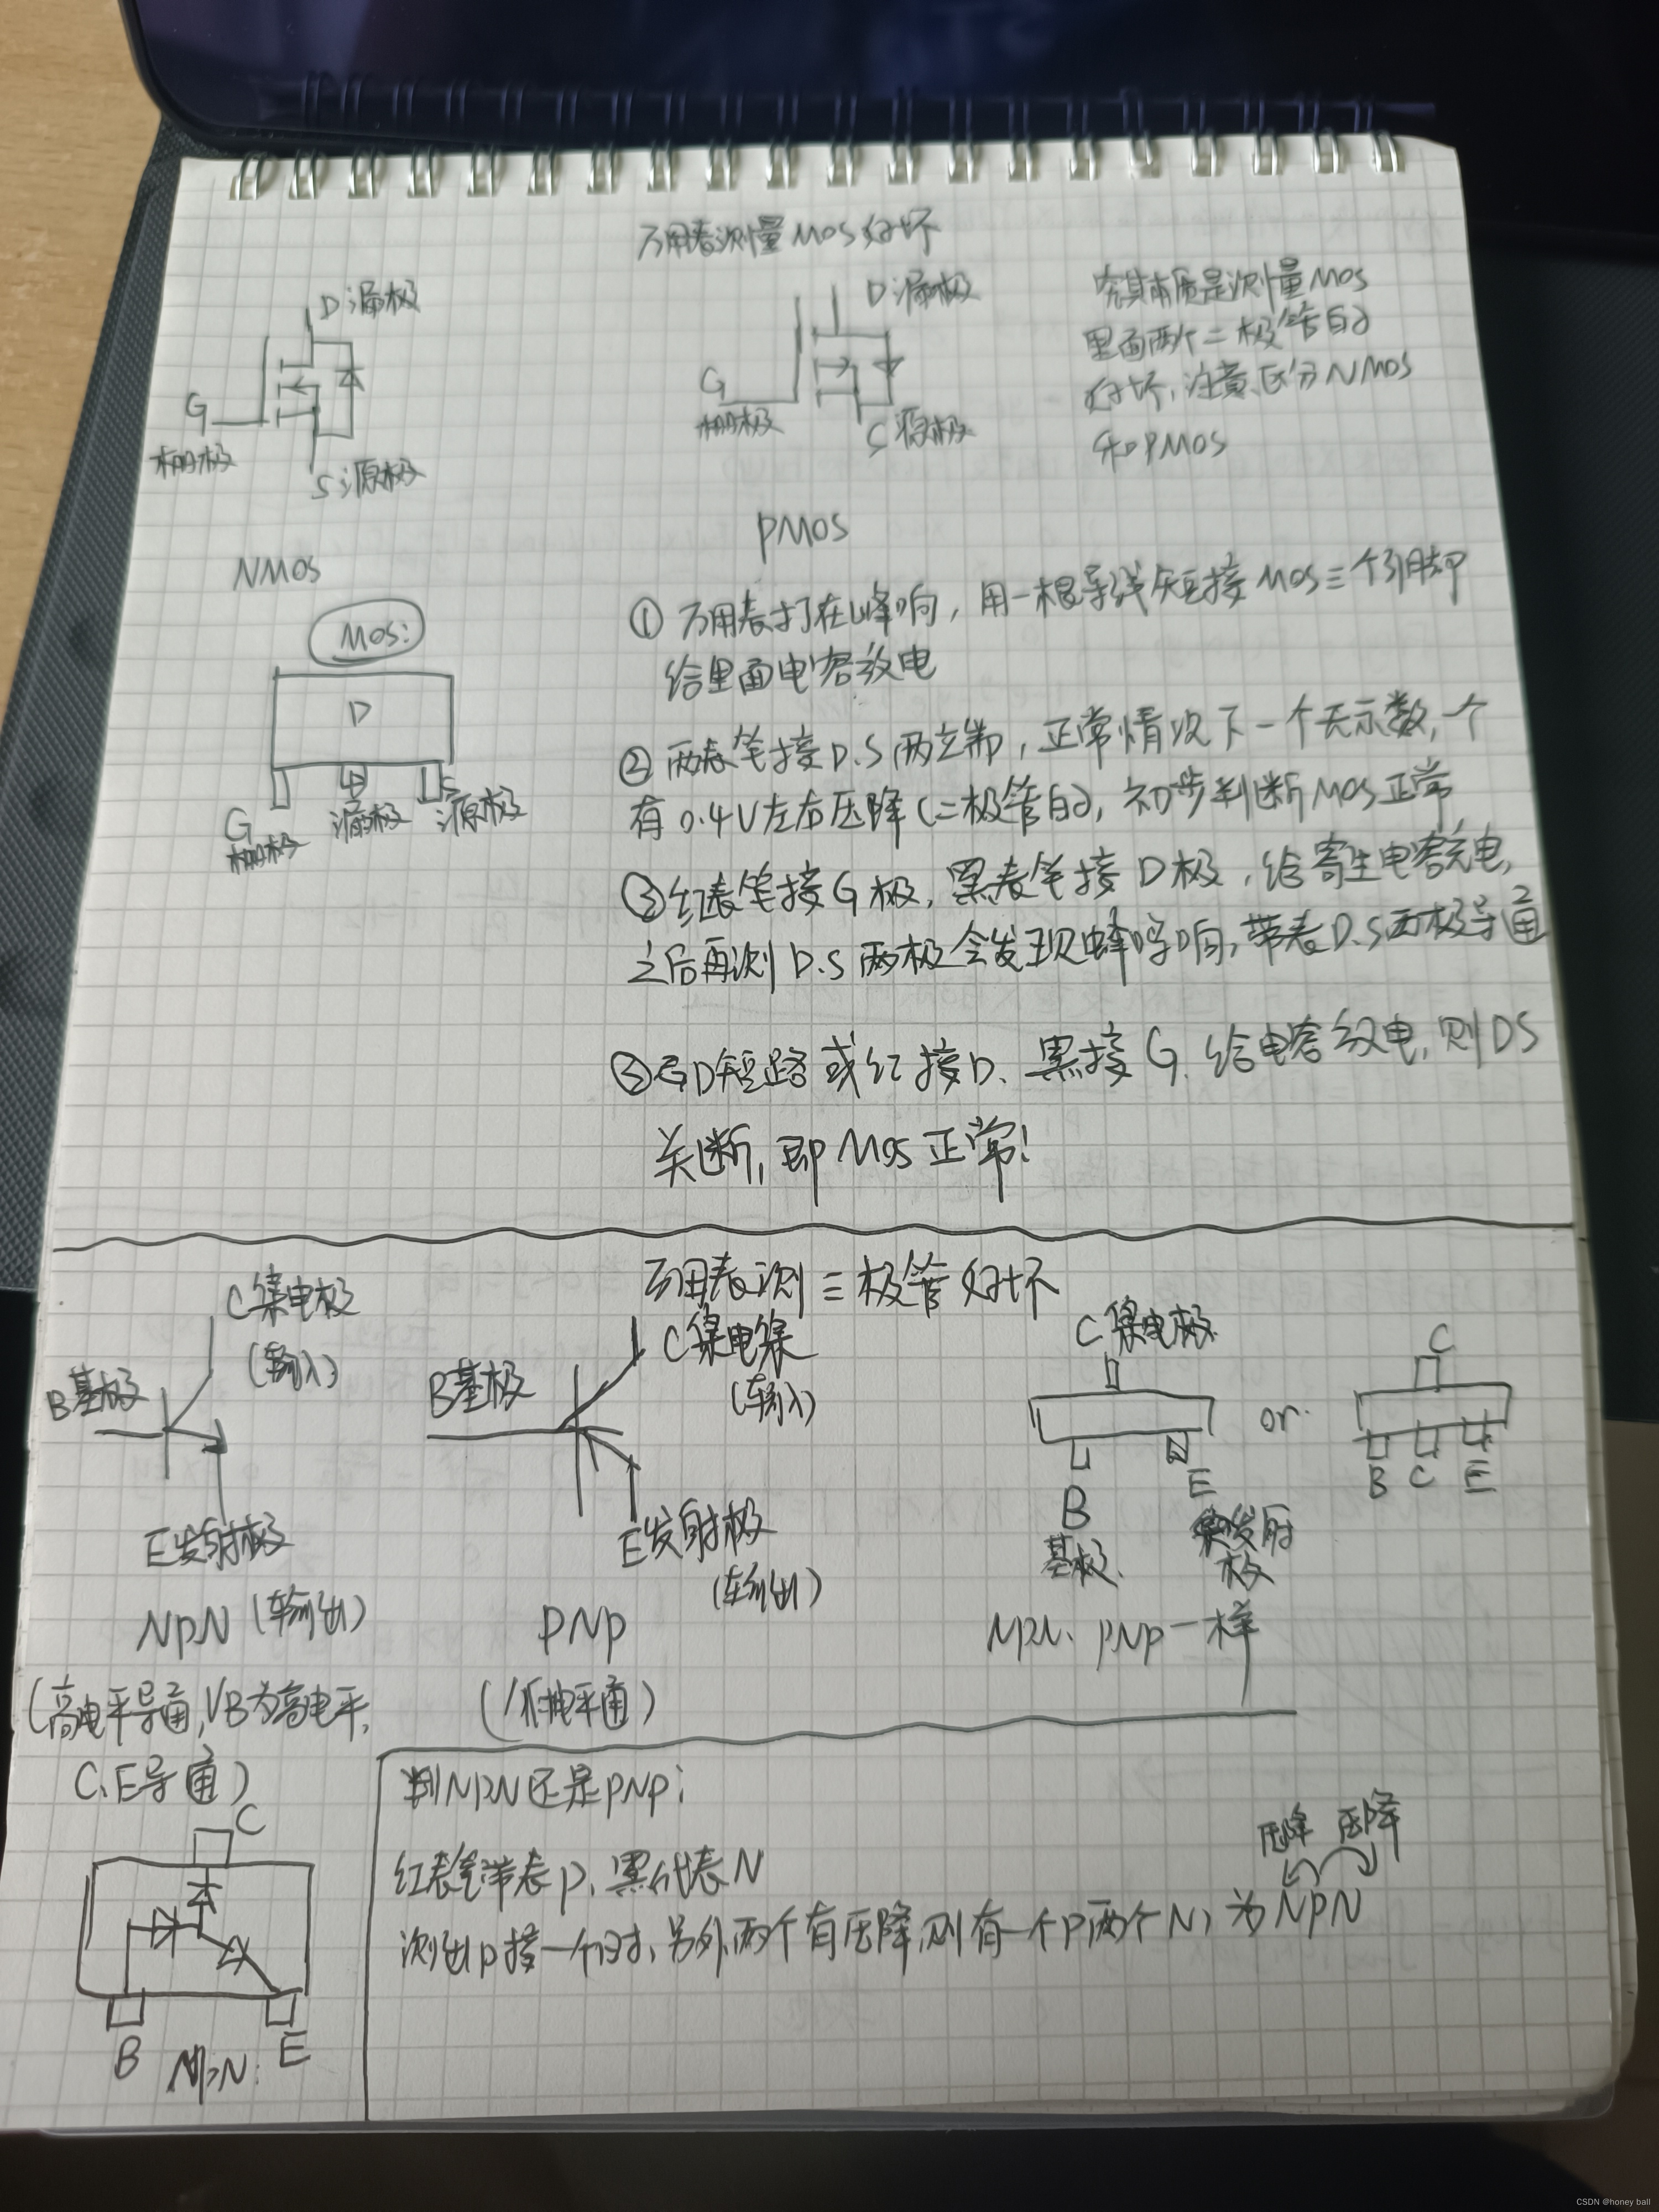 万用表测量MOS好坏
D漏极
G
栅极
S源极
NMOS
D漏极
G
栅极
S源极
PMOS
究其本质是测量MOS
里面两个二极管的
好坏,注意区分NMOS
和PMOS
MOS:
D
G
栅极
D
漏极
S
源极
① 万用表打在蜂响,用一根导线短接MOS三个引脚
给里面电容放电
② 两表笔接D.S两端,正常情况下一个无示数,一个
有0.4V左右压降(二极管的),初步判断MOS正常
③红表笔接G极,黑表笔接D极,给寄生电容充电,
之后再测D.S两极会发现蜂鸣响,带表D.S两极导通
GD短路或红接D、黑接G.给电容放电,则DS
关断,即MOS正常!
万用表测三极管好坏
C集电极
(输入)
B基极
E发射极
NPN(输出)
(高电平导通,VB为高电平,
C、E导通)
C集电集
(输入)
B基极
E发射极
(输出)
PNP
(低电平通)
C集电极
B
基极
E
发射
极
or
C
B C E
NPN、PNP一样
C
B
E
NPN:
判NPN还是PNP:
红表笔带表P、黑代表N
压降 压降
测出P接一个时、另外两个有压降,则有一个P两个N,为NPN
CSDN @honey ball